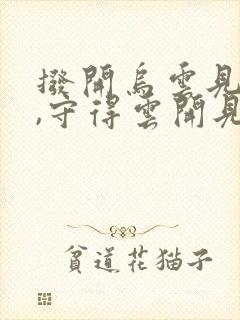 撥開烏雲見
,守得雲開見
貧道花猫子